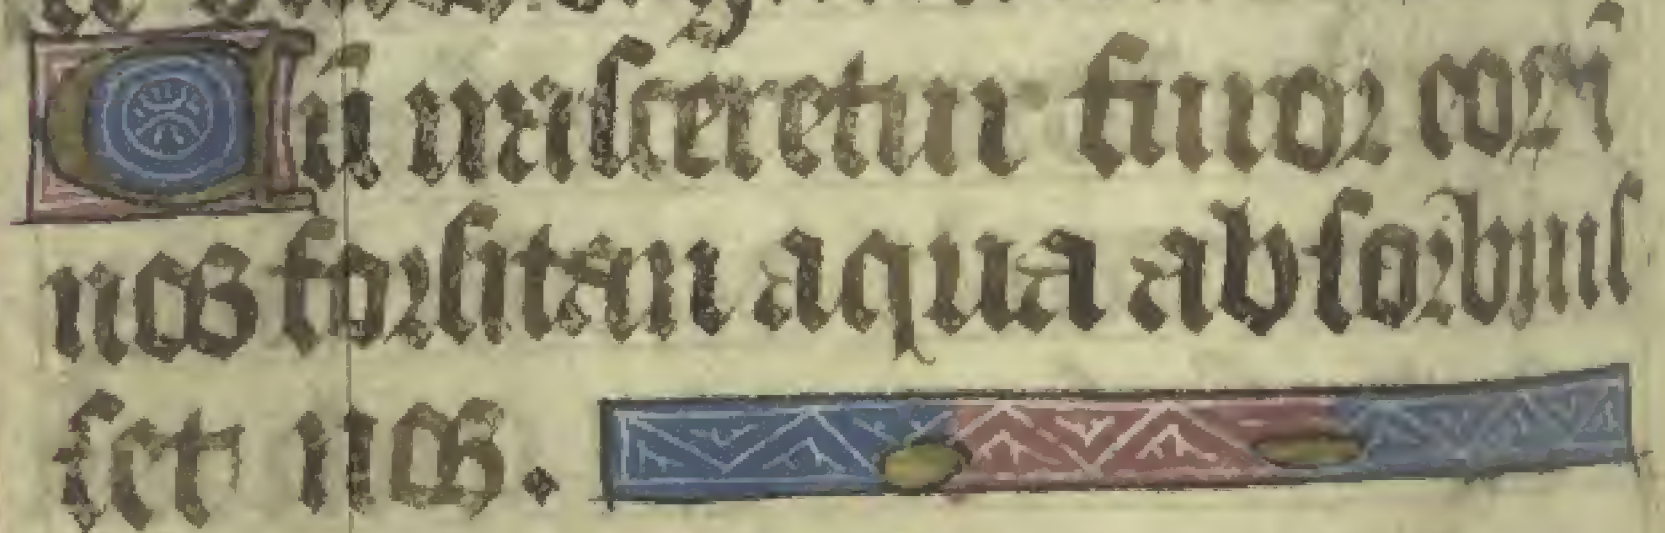 Cū irasceretur furor eorū in
nos forsitan aqua absorbuis
set nos.